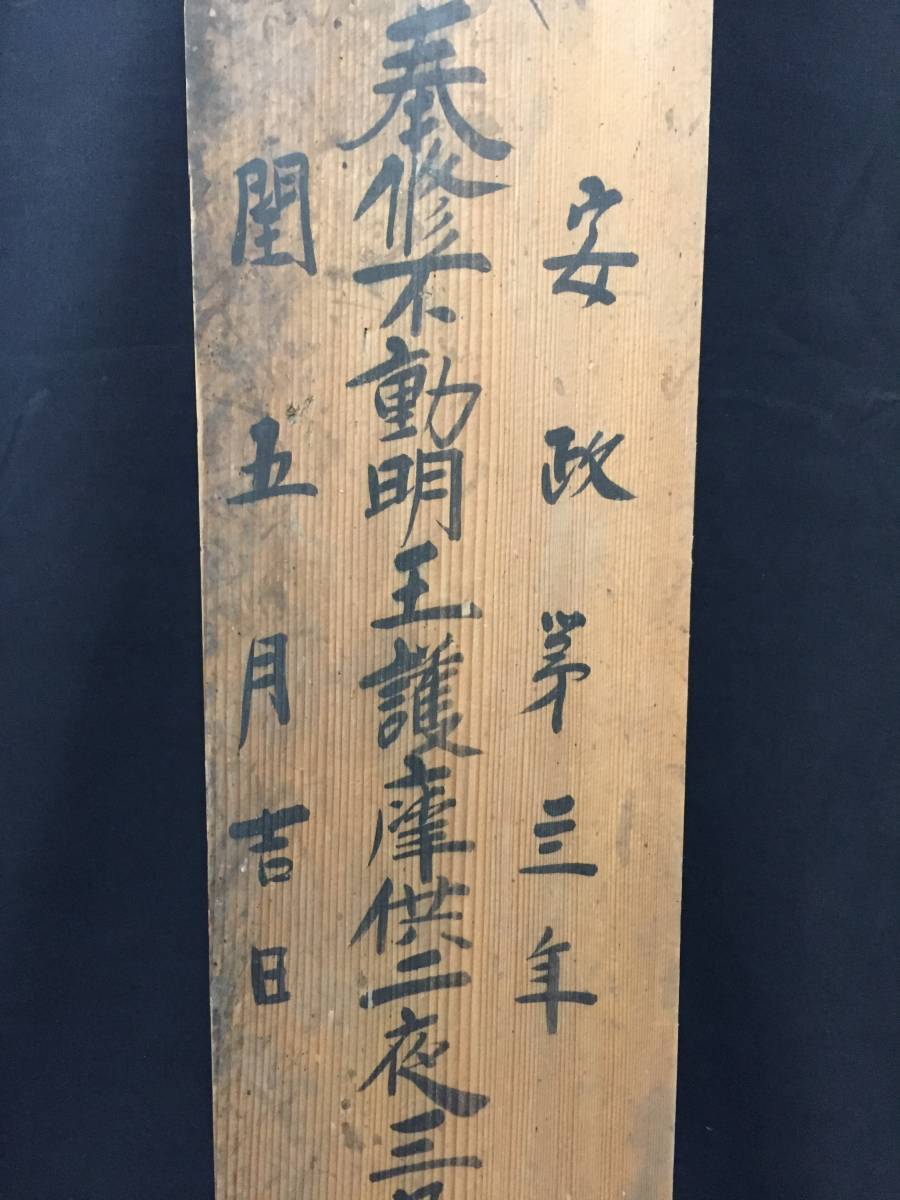 安政第三年
奉修不動明王護摩供二夜三
閏五月吉日